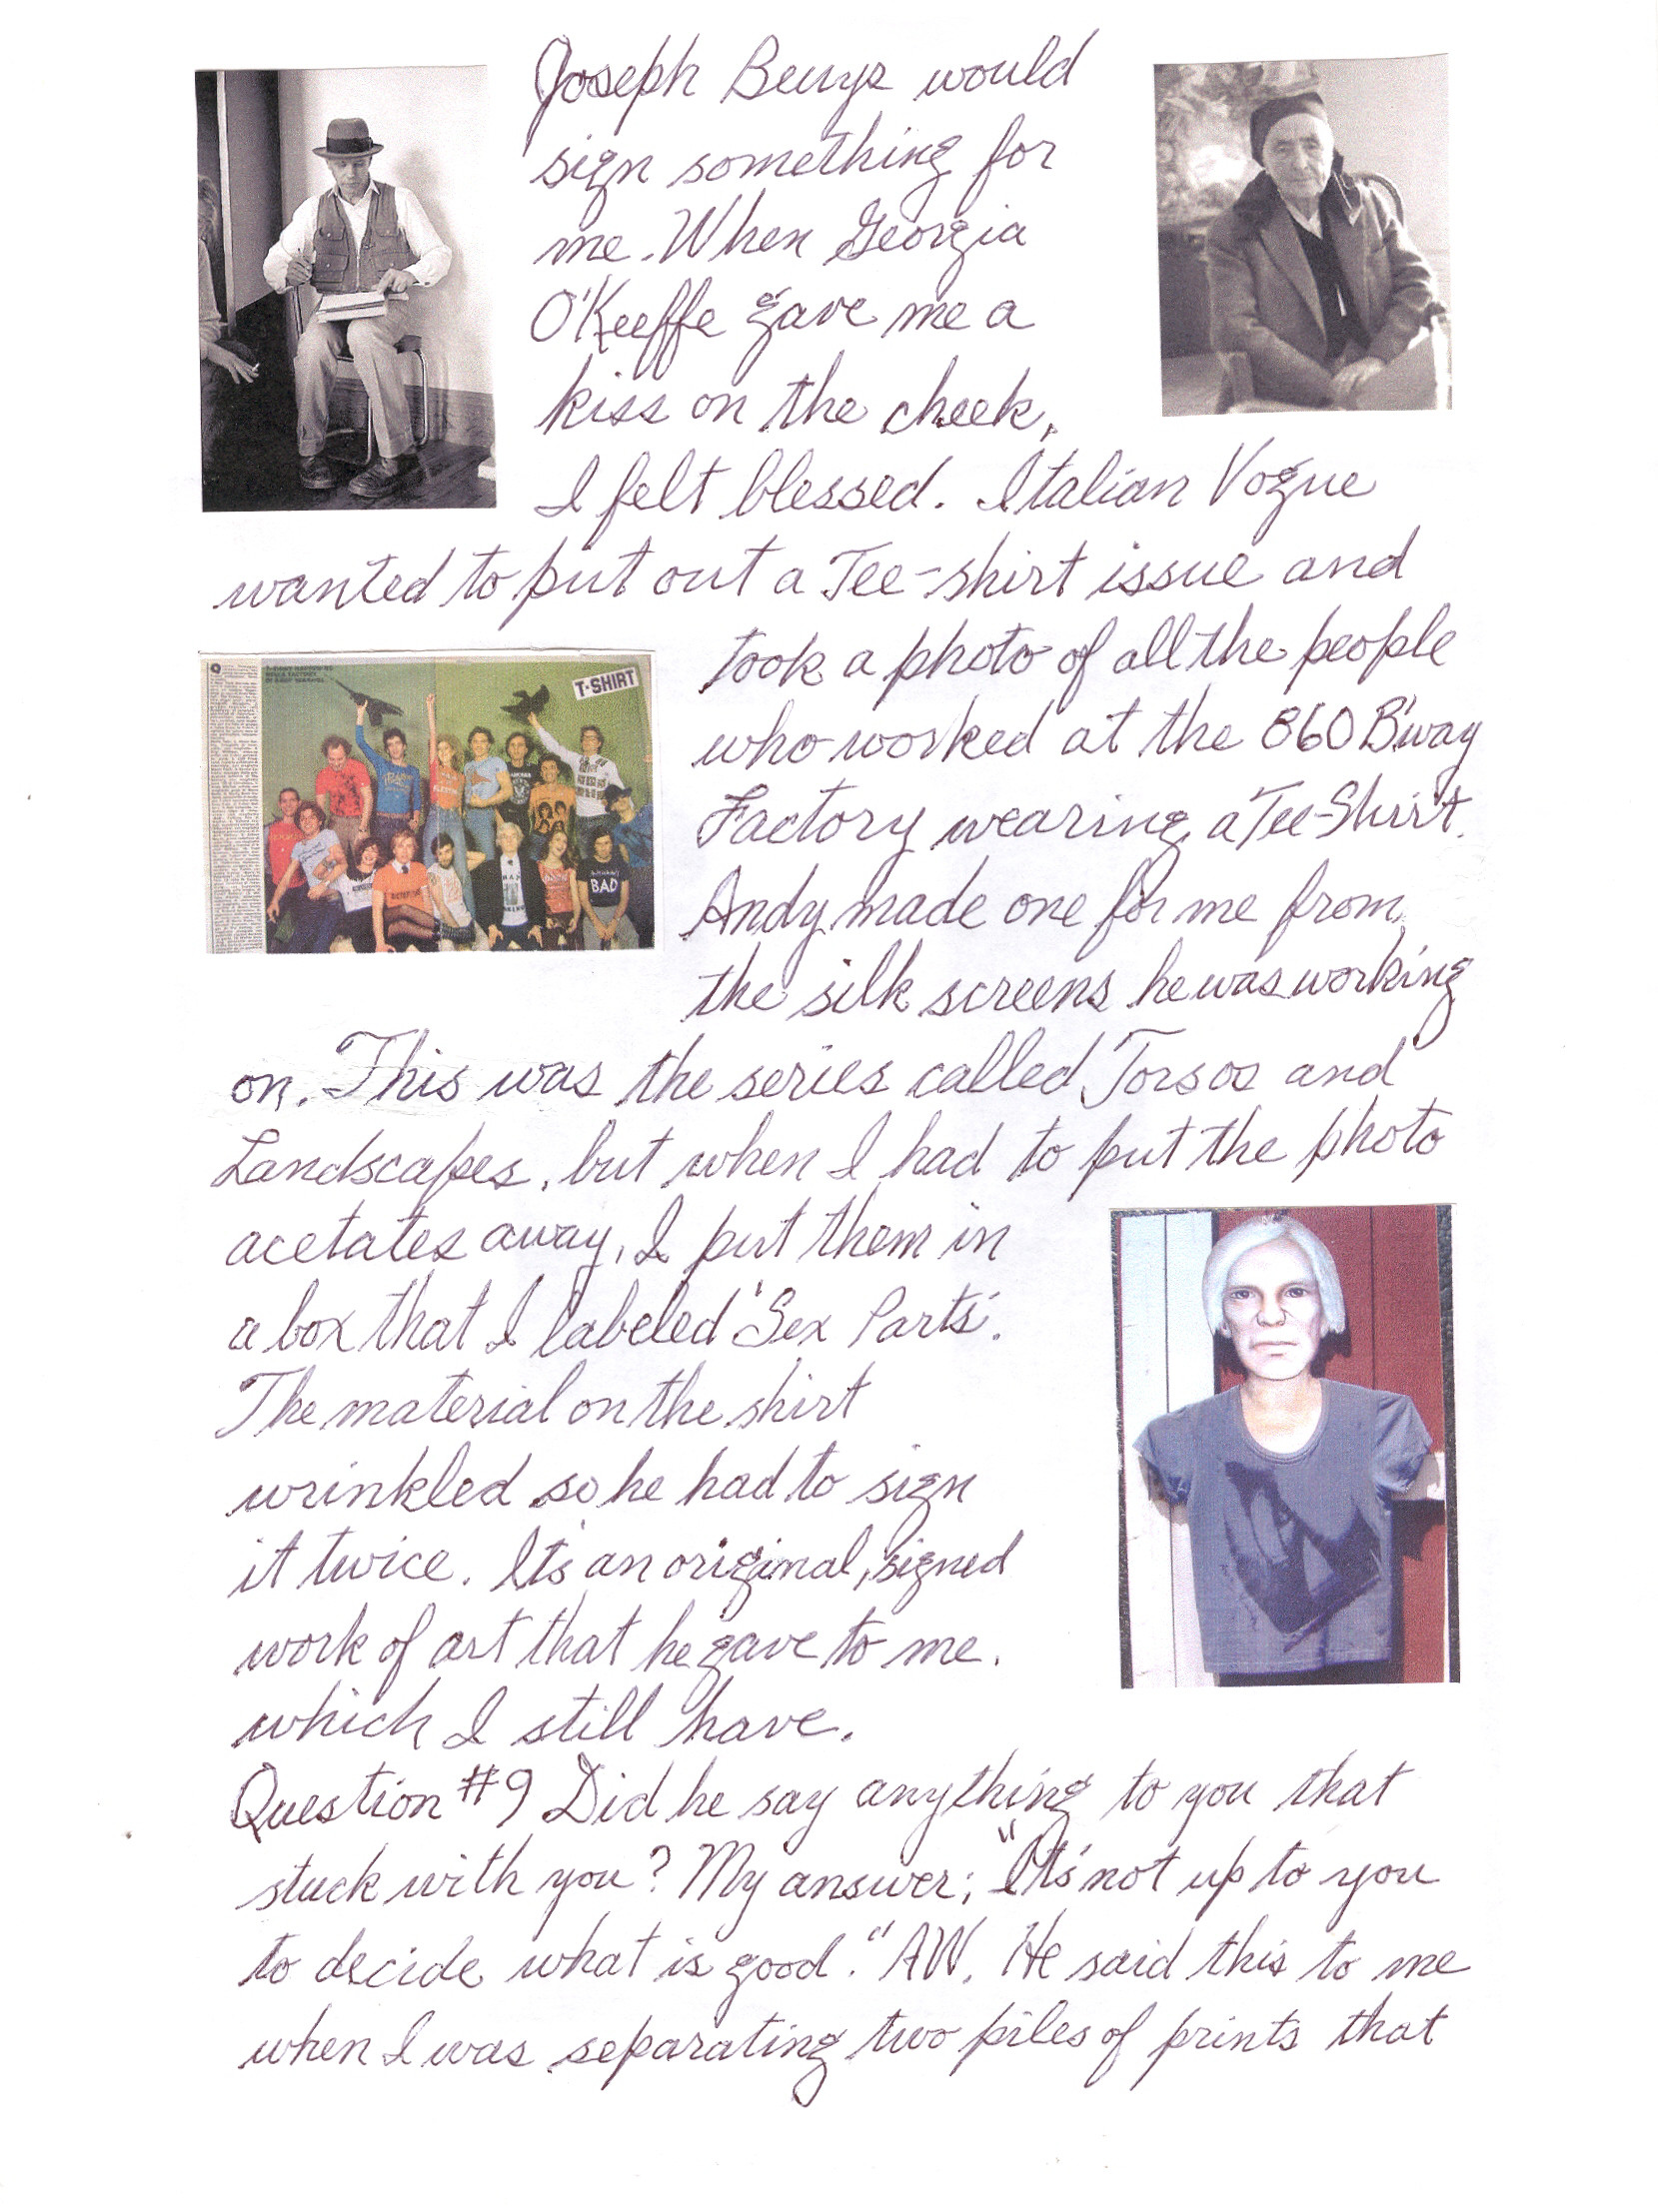 Joseph Beuys would
sign something for
me. When Georgia
O'Keeffe gave me a
kiss on the cheek,
I felt blessed. Italian Vogue
wanted to put out a Tee-shirt issue and
took a photo of all the people
T-SHIRT
who worked at the 860 B'way
Factory wearing a Tee-Shirt.
Andy made one for me from
BAD
the silk screens he was working
on. This was the series called Torsos and
Landscapes, but when I had to put the photo
acetates away, I put them in
a box that I labeled 'Sex Parts'.
The material on the shirt
wrinkled so he had to sign
it twice. It's an original, signed
work of art that he gave to me.
which I still have.
Question #9 Did he say anything to you that
stuck with you? My answer; "It's not up to you
to decide what is good." AW. He said this to me
when I was separating two piles of prints that